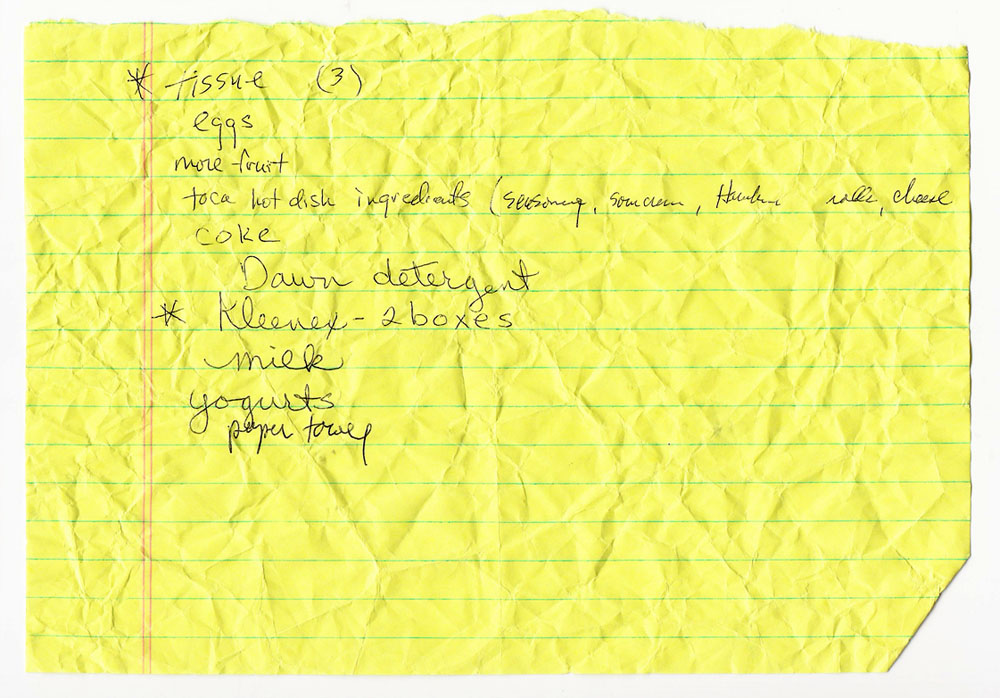 * tissue (3)
eggs
more fruit
toca hot dish ingredients (seasoning, sourcream, rolls, cheese
coke
Dawn detergent
* Kleenex - 2 boxes
milk
yogurts
paper towel